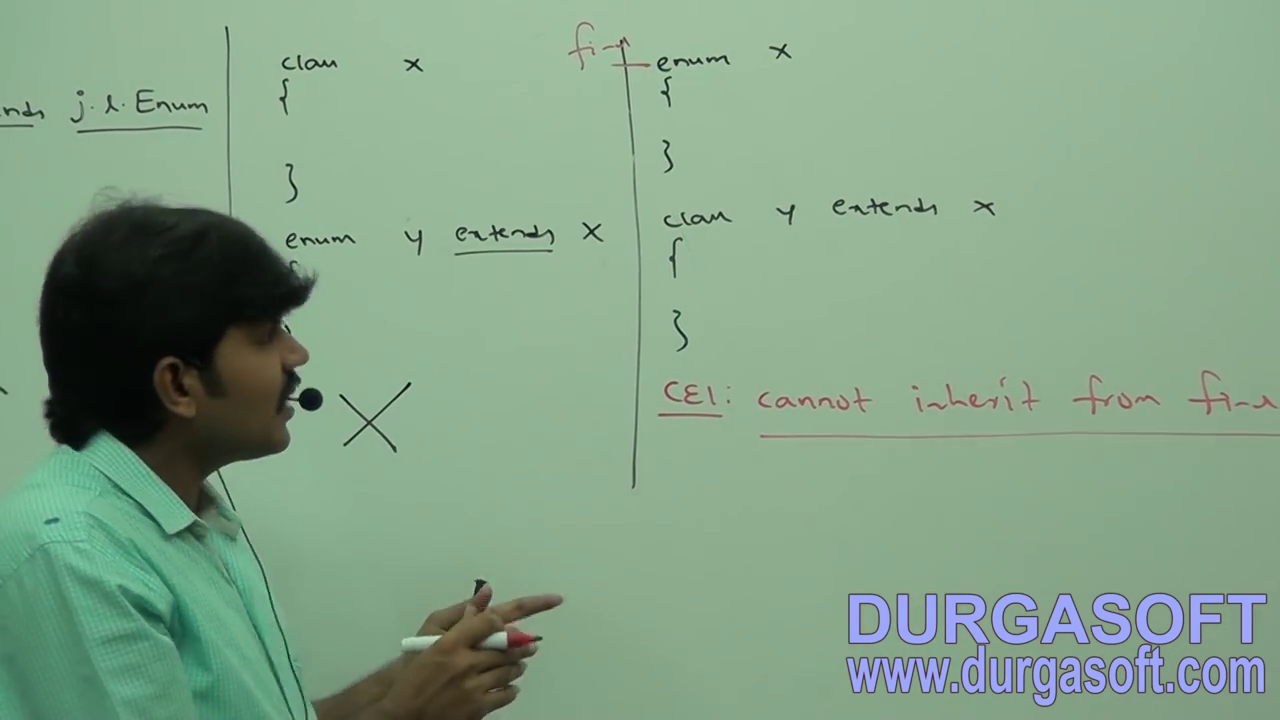 j.l.Enum
class x
{
}
enum y extends x
final enum x
{
}
class y extends x
{
}
CE1: cannot inherit from final
DURGASOFT
www.durgasoft.com